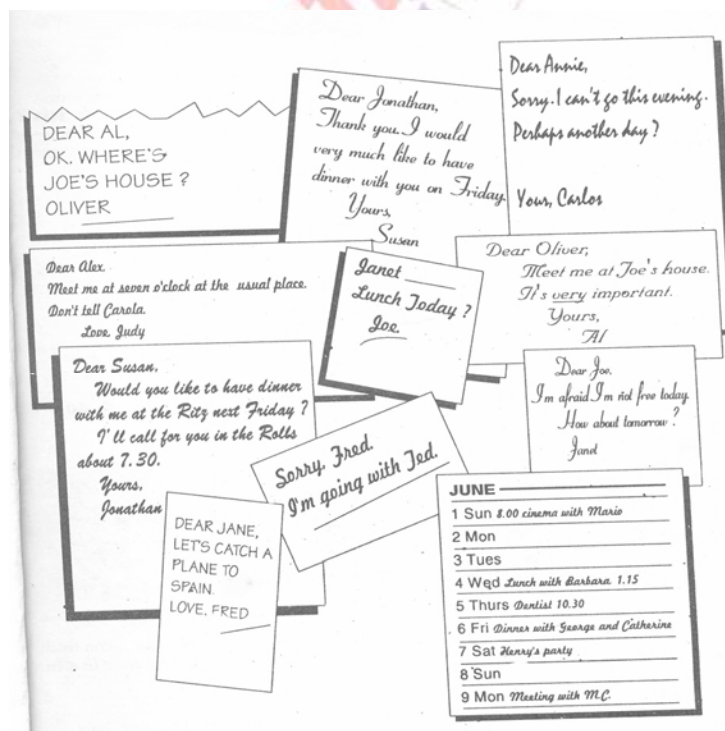 DEAR AL,
OK. WHERE'S
JOE'S HOUSE?
OLIVER
Dear Jonathan,
Thank you. I would
very much like to have
dinner with you on Friday.
Yours,
Susan
Dear Annie,
Sorry. I can't go this evening.
Perhaps another day?
Yours, Carlos
Dear Alex.
Meet me at seven o'clock at the usual place.
Don't tell Carola.
Love Judy
Janet
Lunch Today?
Joe.
Dear Oliver,
Meet me at Joe's house.
It's very important.
Yours,
Al
Dear Susan,
Would you like to have dinner
with me at the Ritz next Friday?
I'll call for you in the Rolls
about 7.30.
Yours,
Jonathan
Dear Joe,
I'm afraid I'm not free today.
How about tomorrow?
Janet
Sorry, Fred.
I'm going with Ted.
DEAR JANE,
LET'S CATCH A
PLANE TO
SPAIN.
LOVE, FRED
JUNE
1 Sun 8.00 cinema with Mario
2 Mon
3 Tues
4 Wed Lunch with Barbara 1.15
5 Thurs Dentist 10.30
6 Fri Dinner with George and Catherine
7 Sat Henry's party
8 Sun
9 Mon Meeting with M.C.